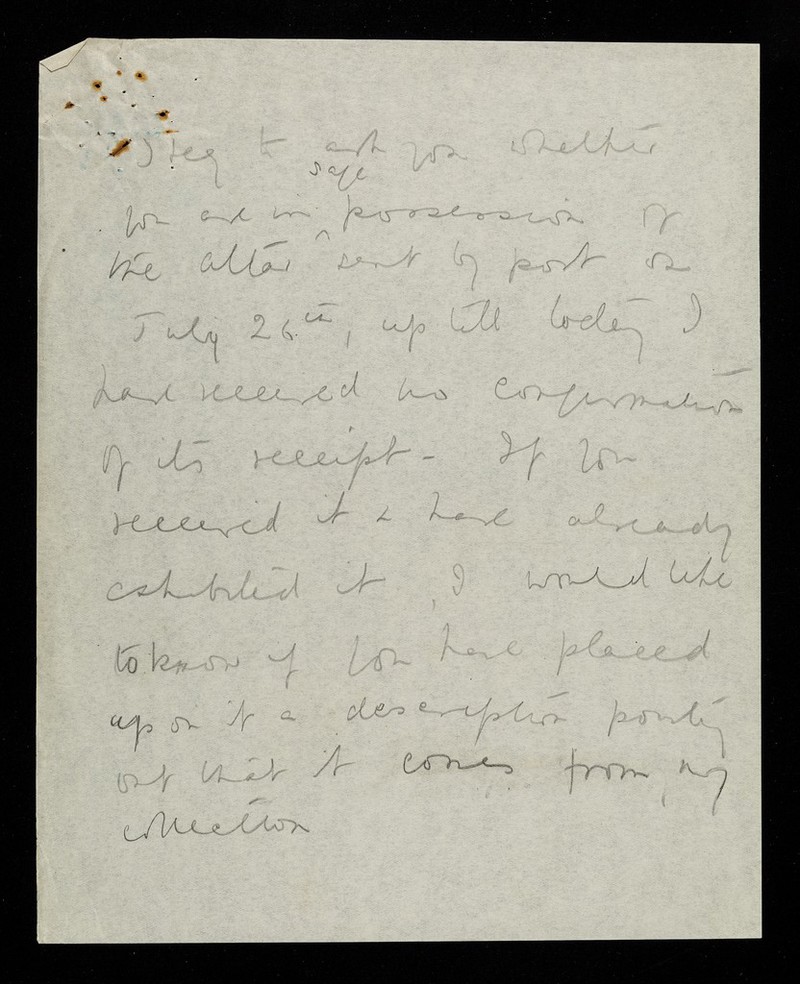 I beg to ask you whether
you are in ^safe possession of
the altar sent by post on
July 26th, up till today I
have received no confirmation
of its receipt - If you
received it & have already
exhibited it, I would like
to know if you have placed
upon it a description pointing
out that it comes from my
collection